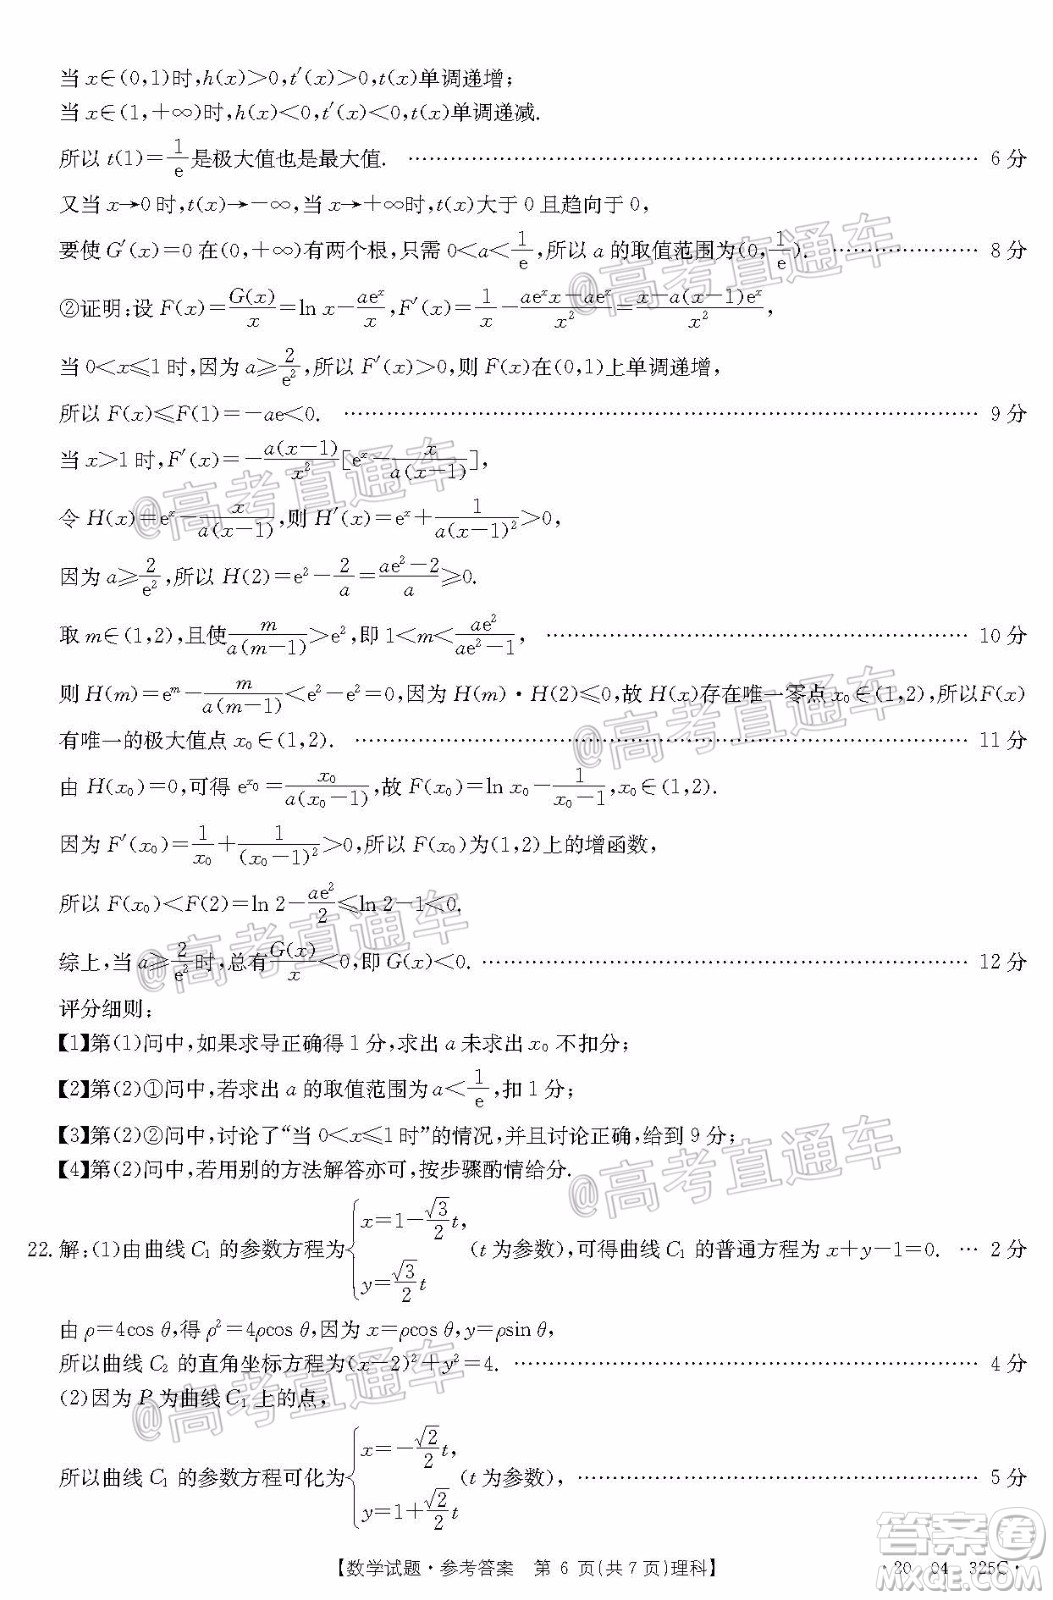 当 x∈(0,1)时,h(x)>0,t′(x)>0,t(x)单调递增;
当 x∈(1,+∞)时,h(x)<0,t′(x)<0,t(x)单调递减.
所以 t(1)=1/e 是极大值也是最大值. …… 6 分
又当 x→0 时,t(x)→−∞,当 x→+∞时,t(x)大于 0 且趋向于 0,
要使 G′(x)=0 在(0,+∞)有两个根,只需 0<a<1/e,所以 a 的取值范围为(0,1/e). …… 8 分
②证明:设 F(x)=G(x)/x=ln x−ae^x/x,F′(x)=1/x−(ae^x x−ae^x)/x²=(x−a(x−1)e^x)/x²,
当 0<x≤1 时,因为 a≥2/e²,所以 F′(x)>0,则 F(x)在(0,1)上单调递增,
所以 F(x)≤F(1)=−ae<0. …… 9 分
当 x>1 时,F′(x)=−a(x−1)/x²[e^x−x/(a(x−1))],
令 H(x)=e^x−x/(a(x−1)),则 H′(x)=e^x+1/(a(x−1)²)>0,
因为 a≥2/e²,所以 H(2)=e²−2/a=(ae²−2)/a≥0.
取 m∈(1,2),且使 m/(a(m−1))>e²,即 1<m<ae²/(ae²−1), …… 10 分
则 H(m)=e^m−m/(a(m−1))<e²−e²=0,因为 H(m)·H(2)≤0,故 H(x)存在唯一零点 x₀∈(1,2),所以F(x)
有唯一的极大值点 x₀∈(1,2). …… 11 分
由 H(x₀)=0,可得 e^x₀=x₀/(a(x₀−1)),故 F(x₀)=ln x₀−1/(x₀−1),x₀∈(1,2).
因为 F′(x₀)=1/x₀+1/(x₀−1)²>0,所以 F(x₀)为(1,2)上的增函数,
所以 F(x₀)<F(2)=ln 2−ae²/2≤ln 2−1<0.
综上,当 a≥2/e²时,总有G(x)/x<0,即 G(x)<0. …… 12 分
评分细则:
【1】第(1)问中,如果求导正确得 1 分,求出 a 未求出 x₀ 不扣分;
【2】第(2)①问中,若求出 a 的取值范围为 a<1/e,扣 1 分;
【3】第(2)②问中,讨论了“当 0<x≤1 时”的情况,并且讨论正确,给到 9 分;
【4】第(2)问中,若用别的方法解答亦可,按步骤酌情给分.
22. 解:(1)由曲线 C₁ 的参数方程为{x=1−√3/2 t, y=√3/2 t (t 为参数),可得曲线 C₁ 的普通方程为 x+y−1=0. … 2 分
由 ρ=4cos θ,得 ρ²=4ρcos θ,因为 x=ρcos θ,y=ρsin θ,
所以曲线 C₂ 的直角坐标方程为(x−2)²+y²=4. …… 4 分
(2)因为 P 为曲线 C₁ 上的点,
所以曲线 C₁ 的参数方程可化为{x=−√2/2 t, y=1+√2/2 t (t 为参数), …… 5 分
【数学试题·参考答案 第 6 页(共 7 页)理科】
·20-04-325C·
@高考直通车
@高考直通车
@高考直通车
@高考直通车
@高考直通车
@高考直通车
@高考直通车
答案圈
MXQE.COM